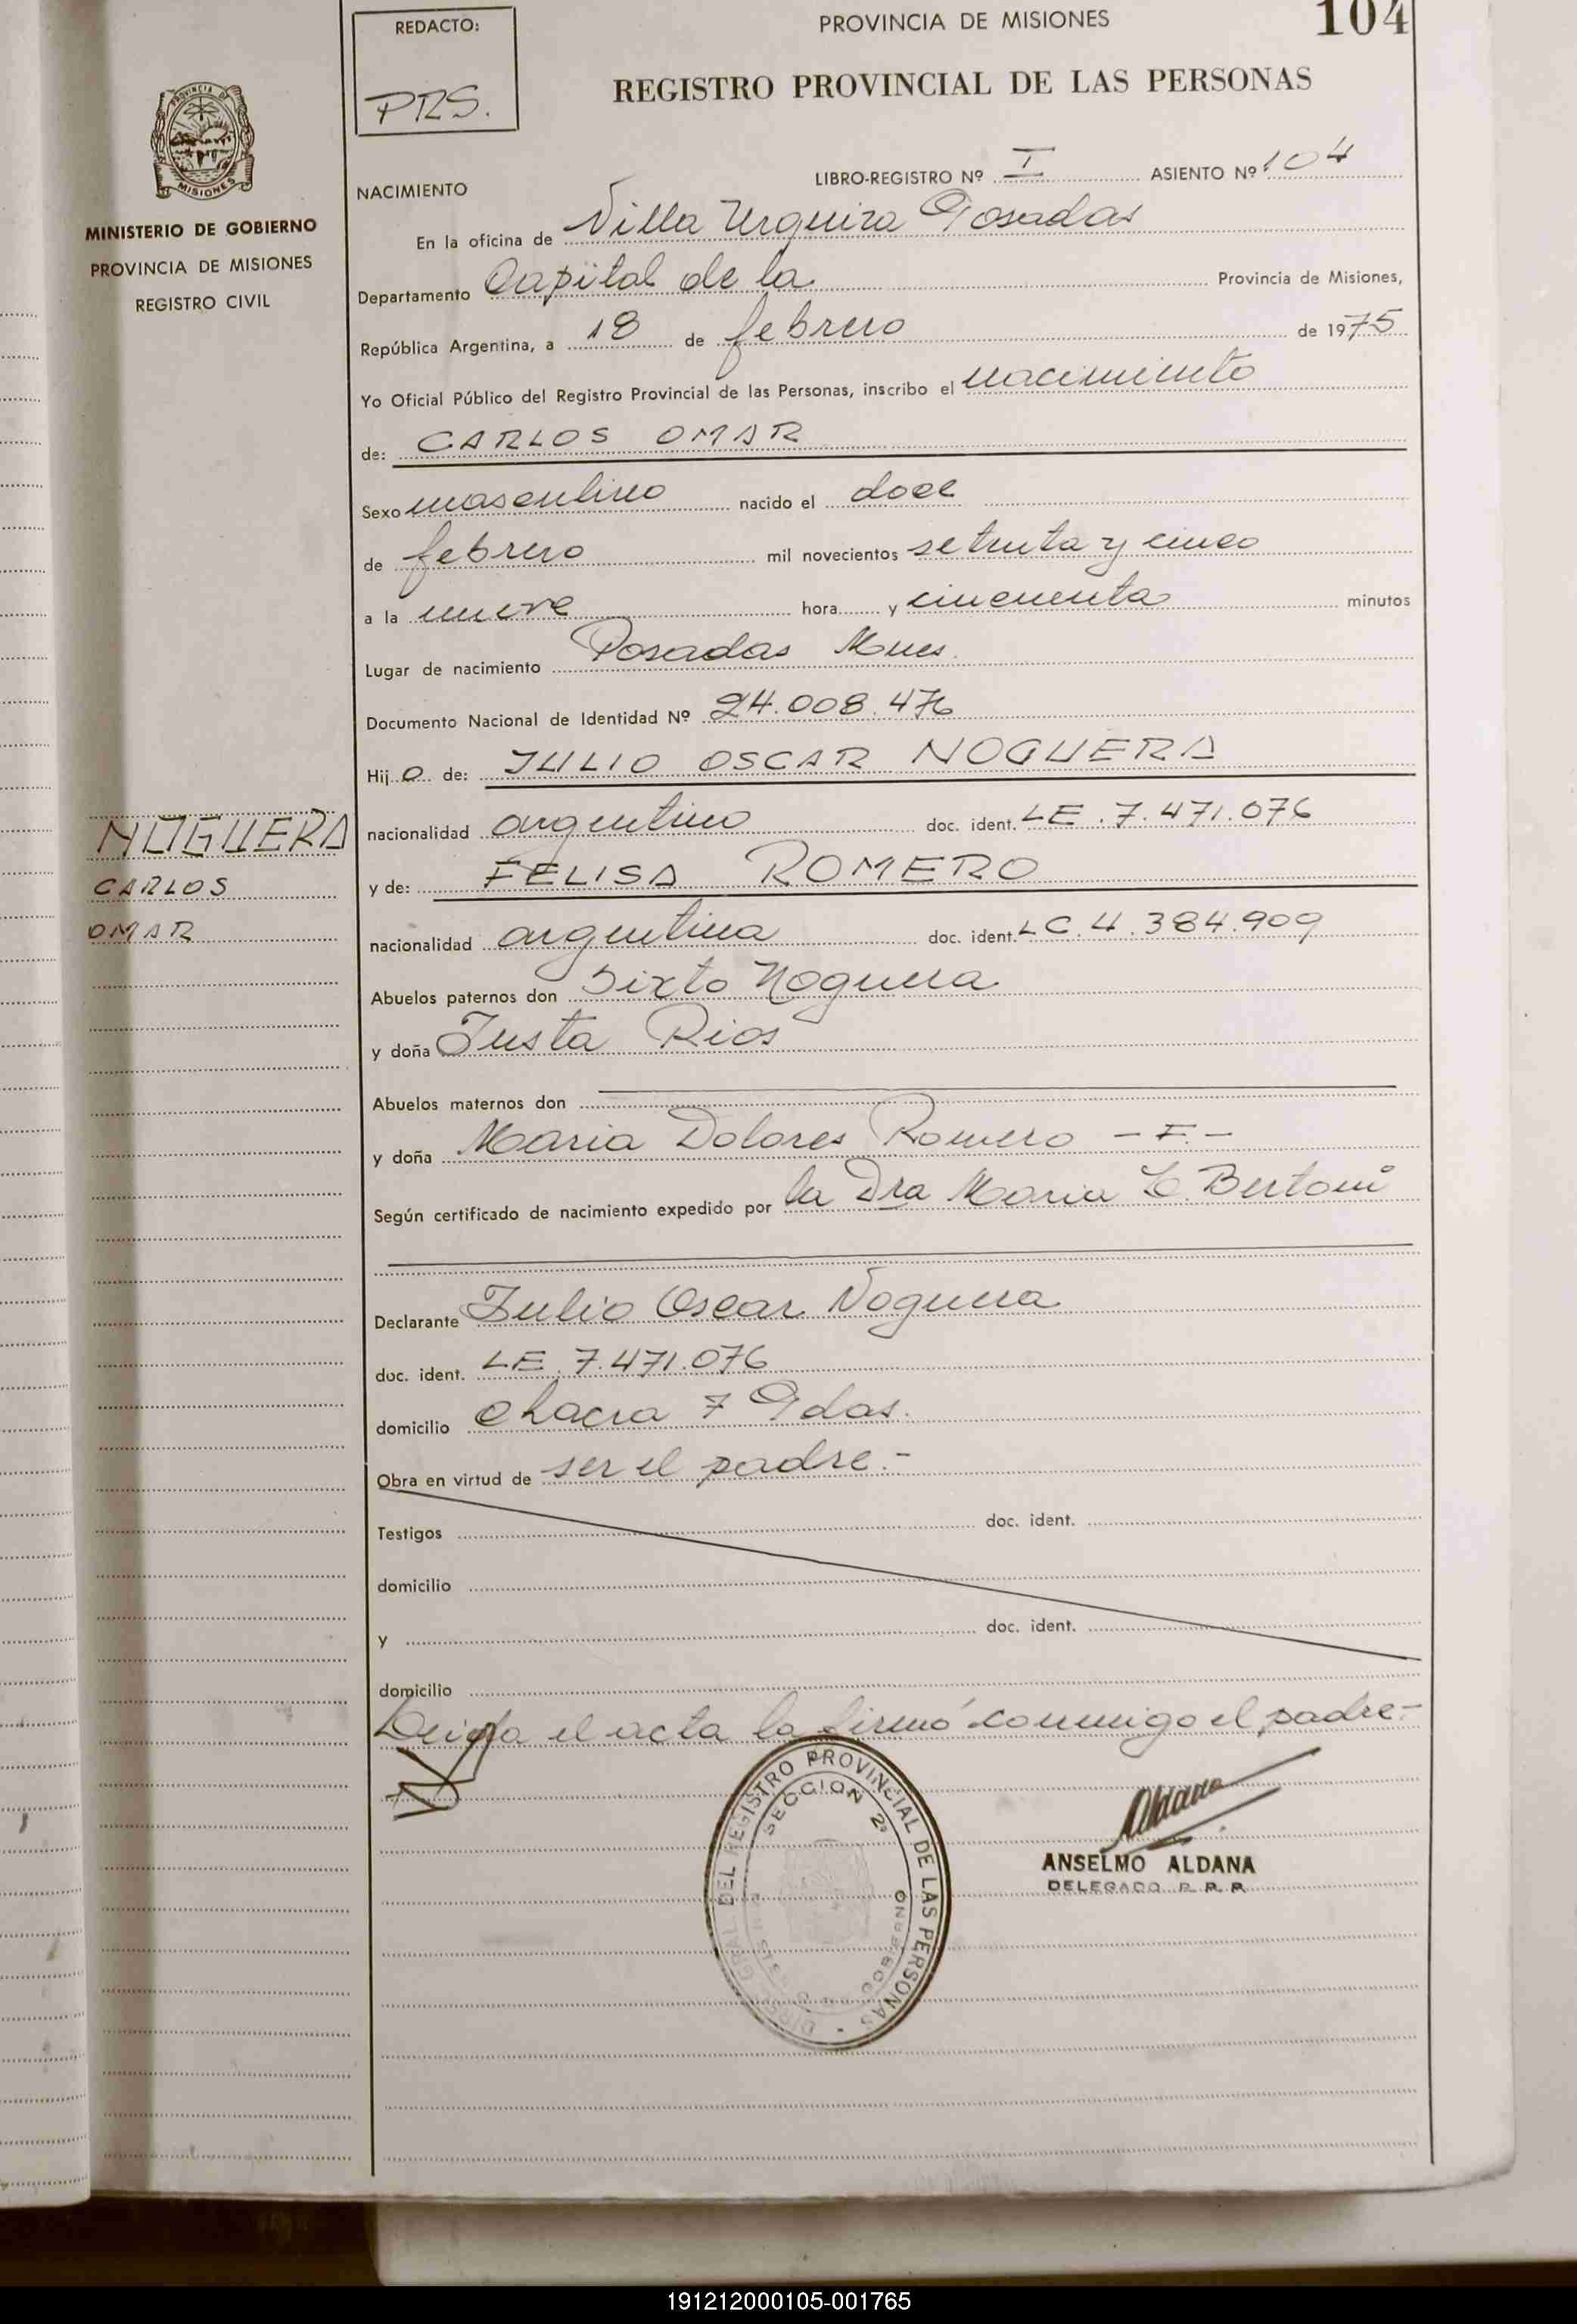 REDACTO:
PRS.
PROVINCIA DE MISIONES
104
REGISTRO PROVINCIAL DE LAS PERSONAS
PROVINCIA DE
MISIONES
MINISTERIO DE GOBIERNO
PROVINCIA DE MISIONES
REGISTRO CIVIL
NACIMIENTO
LIBRO-REGISTRO Nº I ASIENTO Nº 104
En la oficina de Villa Urquiza Posadas
Departamento Capital de la Provincia de Misiones,
República Argentina, a 18 de febrero de 1975
Yo Oficial Público del Registro Provincial de las Personas, inscribo el nacimiento
de: CARLOS OMAR
Sexo masculino nacido el doce
de febrero mil novecientos setenta y cinco
a la nueve hora y cincuenta minutos
Lugar de nacimiento Posadas Mnes.
Documento Nacional de Identidad Nº 24.008.476
Hij o de: JULIO OSCAR NOGUERA
NOGUERA
CARLOS
OMAR
nacionalidad argentino doc. ident. LE. 7.471.076
y de: FELISA ROMERO
nacionalidad argentina doc. ident. LC. 4.384.909
Abuelos paternos don Sixto Noguera
y doña Justa Rios
Abuelos maternos don
y doña Maria Dolores Romero - F. -
Según certificado de nacimiento expedido por la Dra Maria E. Bertoni
Declarante Julio Oscar Noguera
doc. ident. LE. 7.471.076
domicilio chacra 7 Pdas.
Obra en virtud de ser el padre.-
Testigos doc. ident.
domicilio
y doc. ident.
domicilio
Leida el acta la firmó conmigo el padre.-
DEL REGISTRO PROVINCIAL DE LAS PERSONAS
SECCION 2ª
Aldana
ANSELMO ALDANA
DELEGADO R. P. P.
191212000105-001765